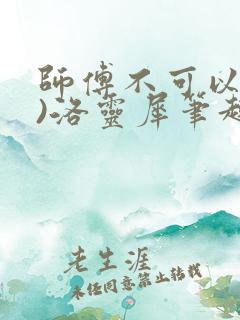 師傅不可以
)洛靈犀筆趣
老生涯
未经同意禁止转载